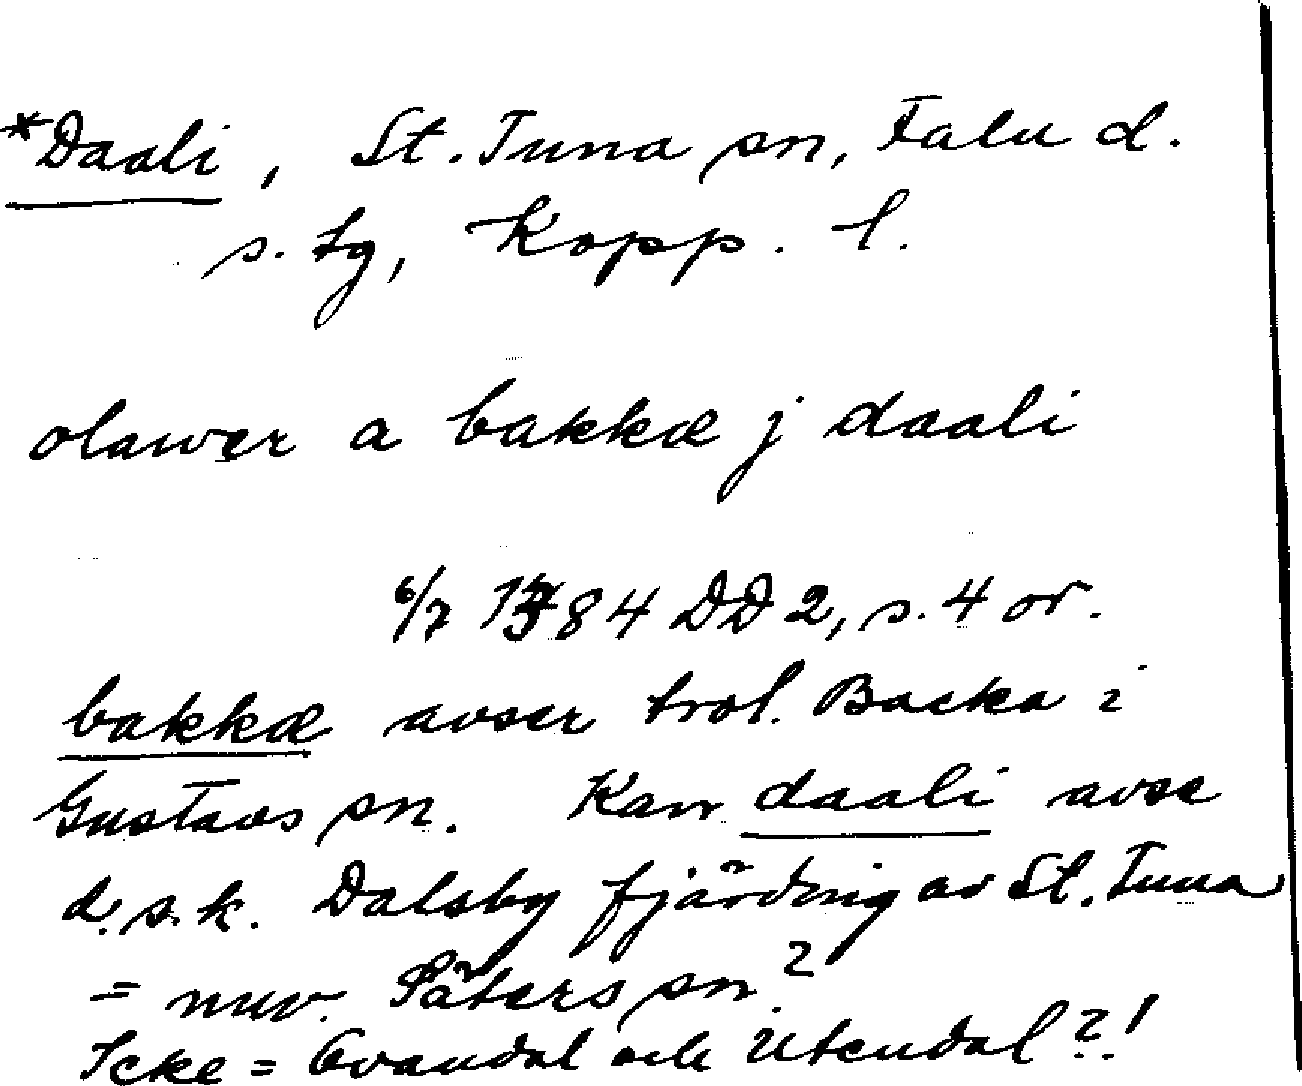 *Daali, St. Tuna sn, Falu d.
s. tg, Kopp. l.
olawer a bakkæ j daali
6/7 1384 DD 2, s. 4 or.
bakkæ avser trol. Backa i
Gustavs sn. Kan daali avse
d. s. k. Dalsby fjärding av St. Tuna
= nuv. Säters sn?
Icke = Ovandal och Utendal?!